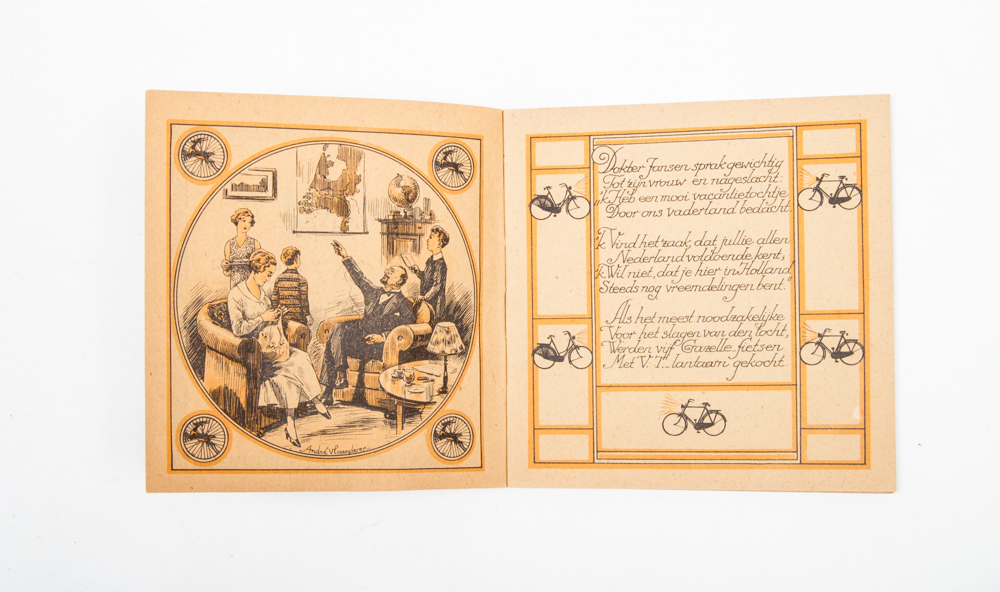 André Vlaanderen
Dokter Jansen sprak gewichtig
Tot zijn vrouw en nageslacht:
„'k Heb een mooi vacantietochtje
Door ons vaderland bedacht.
'k Vind het zaak, dat jullie allen
Nederland voldoende kent,
'k Wil niet, dat je hier in Holland
Steeds nog vreemdelingen bent."
Als het meest noodzakelijke
Voor het slagen van den tocht,
Werden vijf Gazelle-fietsen
Met V. T.-lantaarn gekocht.